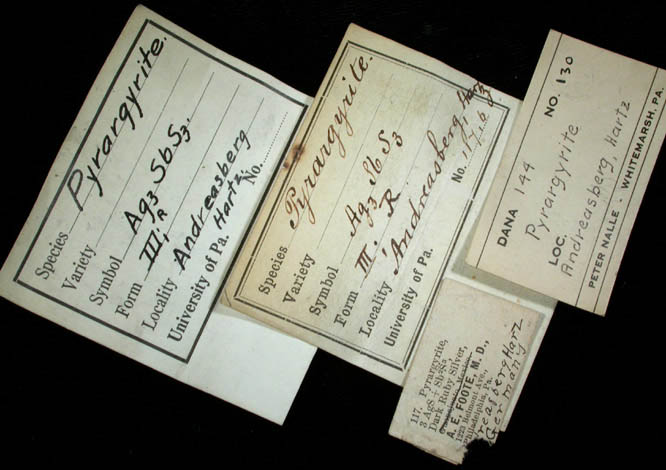 Species Pyrargyrite.
Variety
Symbol Ag3 SbS3.
Form III; R
Locality Andreasberg
Hartz
University of Pa. No.
Species Pyrargyrite.
Variety
Symbol Ag3 SbS3
Form III; R
Locality Andreasberg, Harz
University of Pa. No.
DANA 144 NO. 130
Pyrargyrite
LOC. Andreasberg, Hartz
PETER NALLE - WHITEMARSH, PA.
117. Pyrargyrite,
3 AgS + Sb2S3
Dark Ruby Silver,
A. E. FOOTE, M. D.,
1223 Belmont Ave.,
Philadelphia, Pa.
reasberg Harz
Germany